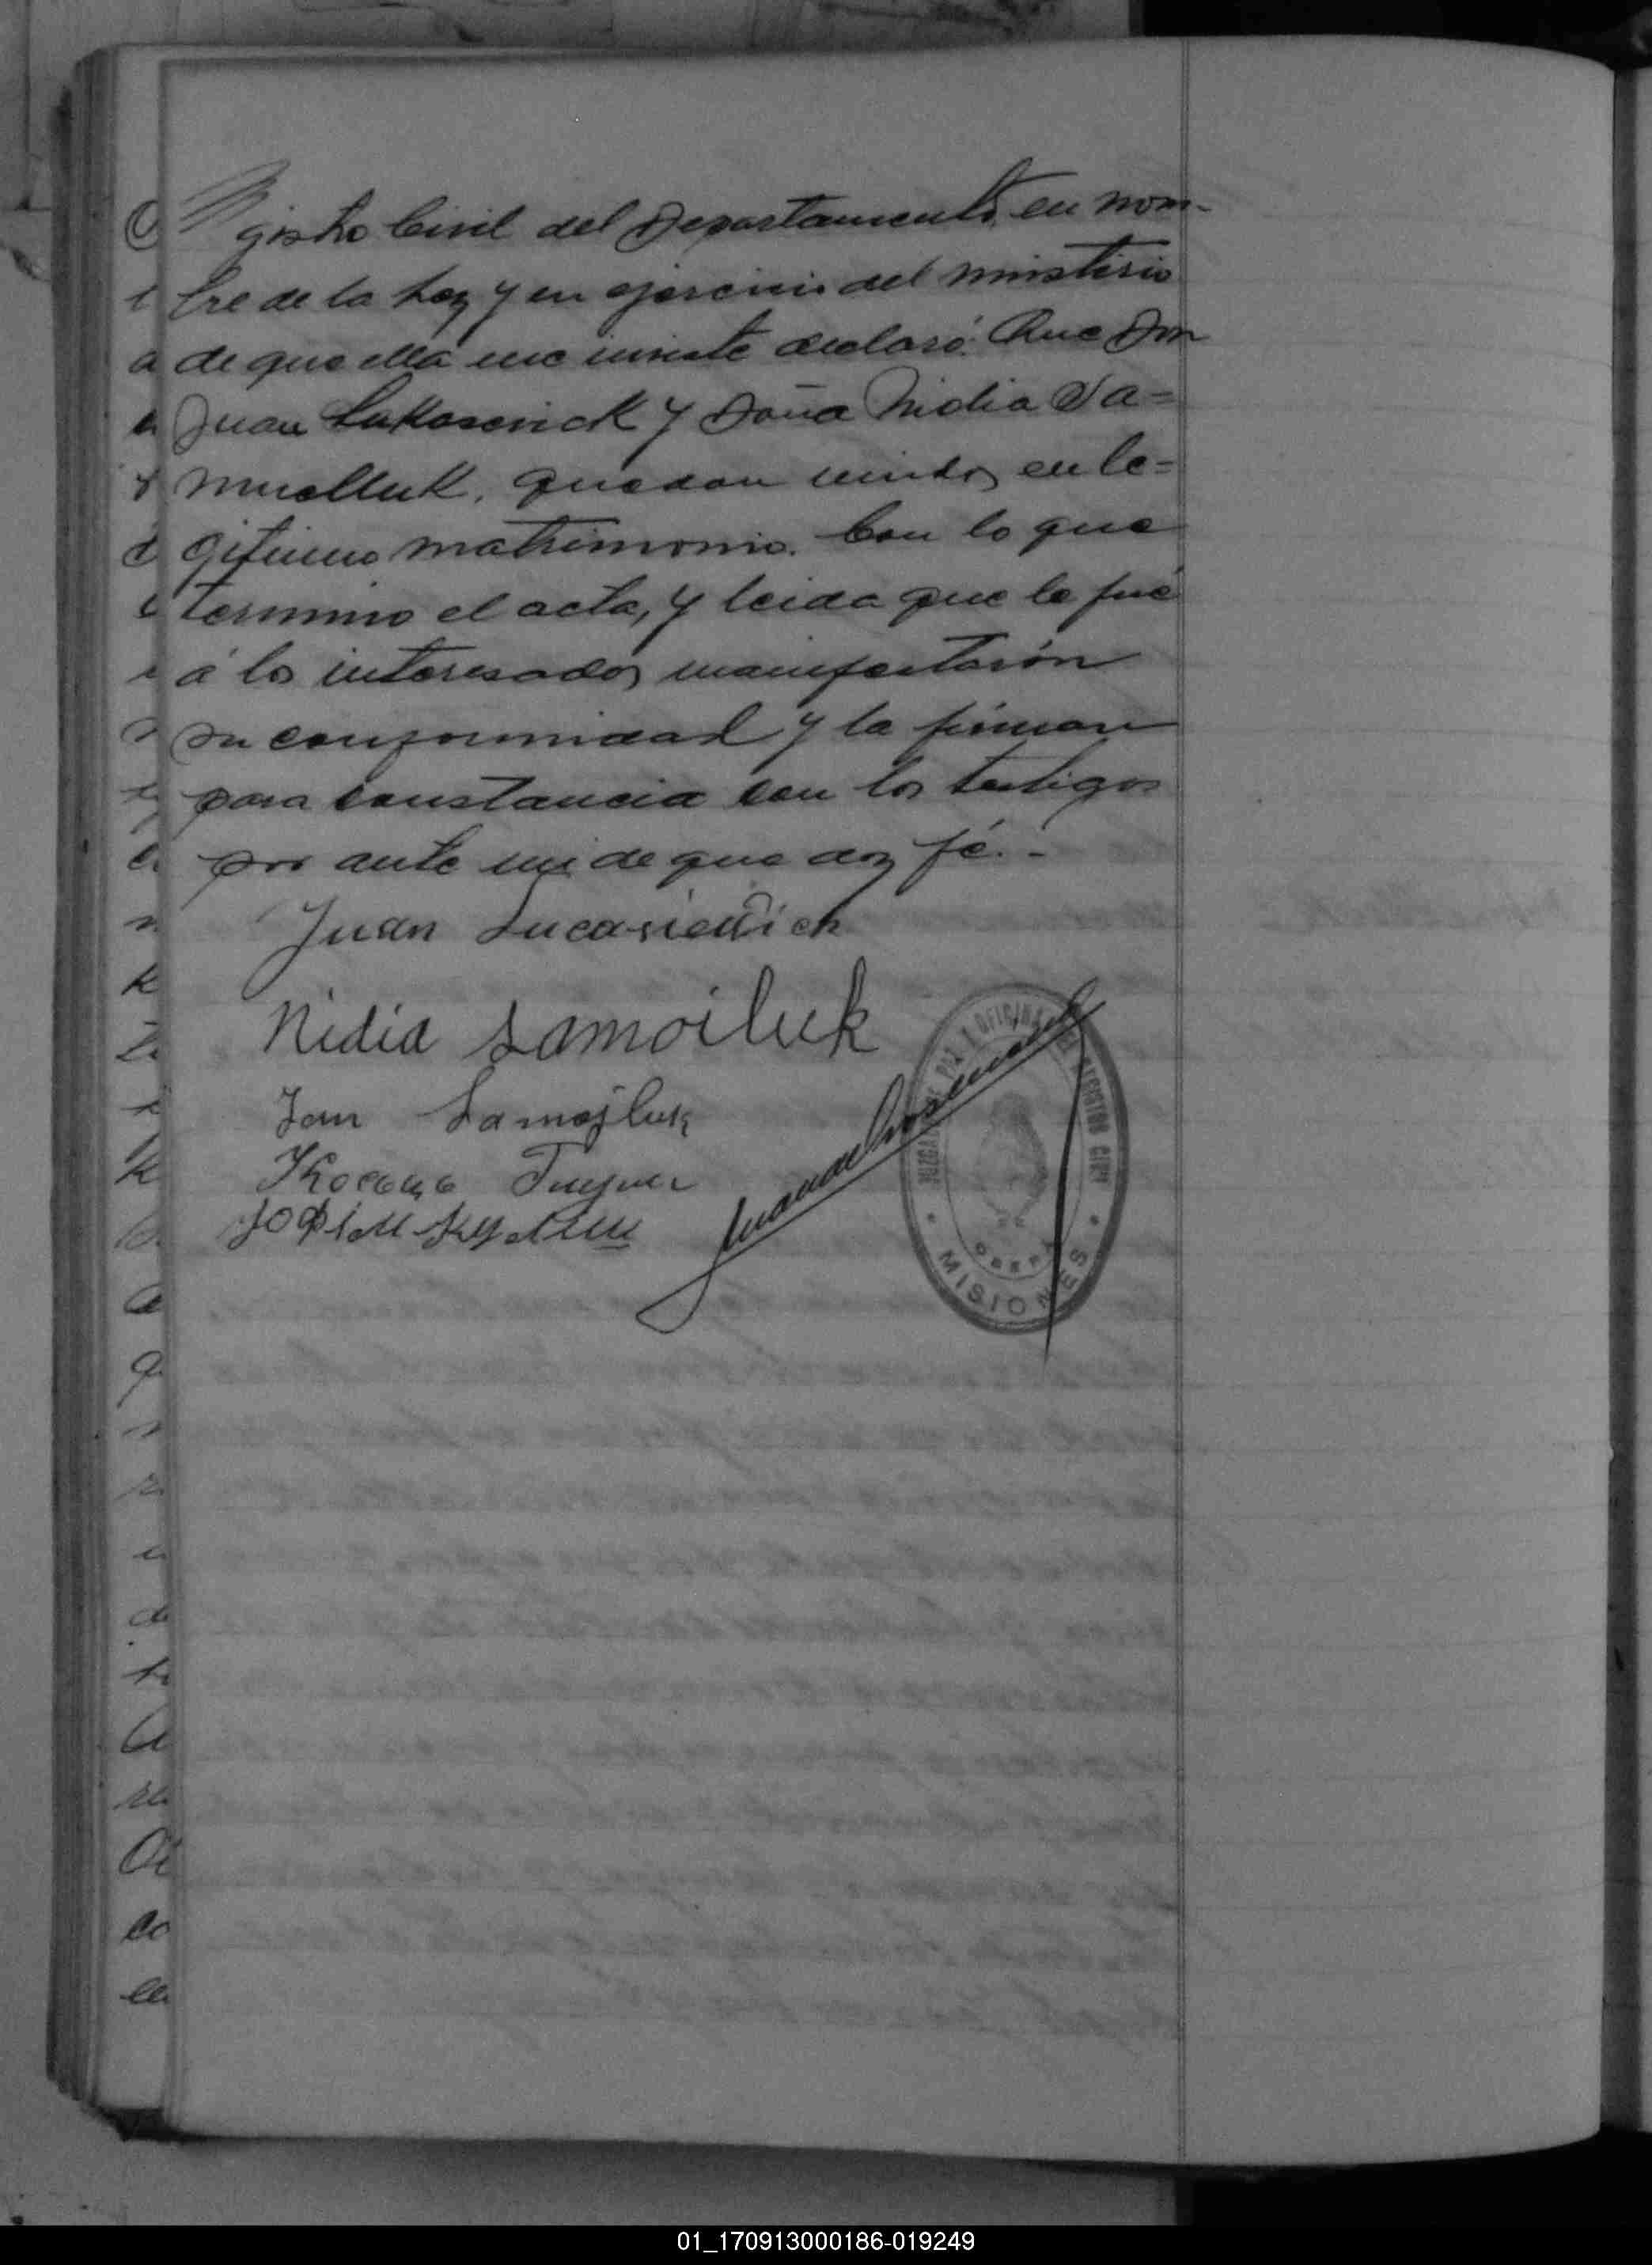 gistro Civil del Departamento, en nom-
bre de la Ley y en ejercicio del ministerio
de que ella me inviste declaró: Que Don
Juan Lukasevick y Doña Nidia Sa=
muelluk, quedan unidos en le=
gitimo matrimonio. Con lo que
termino el acta, y leida que le fué
á los interesados manifestarón
su conformidad y la firman
para constancia con los testigos
por ante mi de que doy fé.-
Juan Lucasiewich
Nidia Samoiluk
Jan Samojluk
JUZGADO DE PAZ Y OFICINA DEL REGISTRO CIVIL
OBERA
MISIONES
01_170913000186-019249